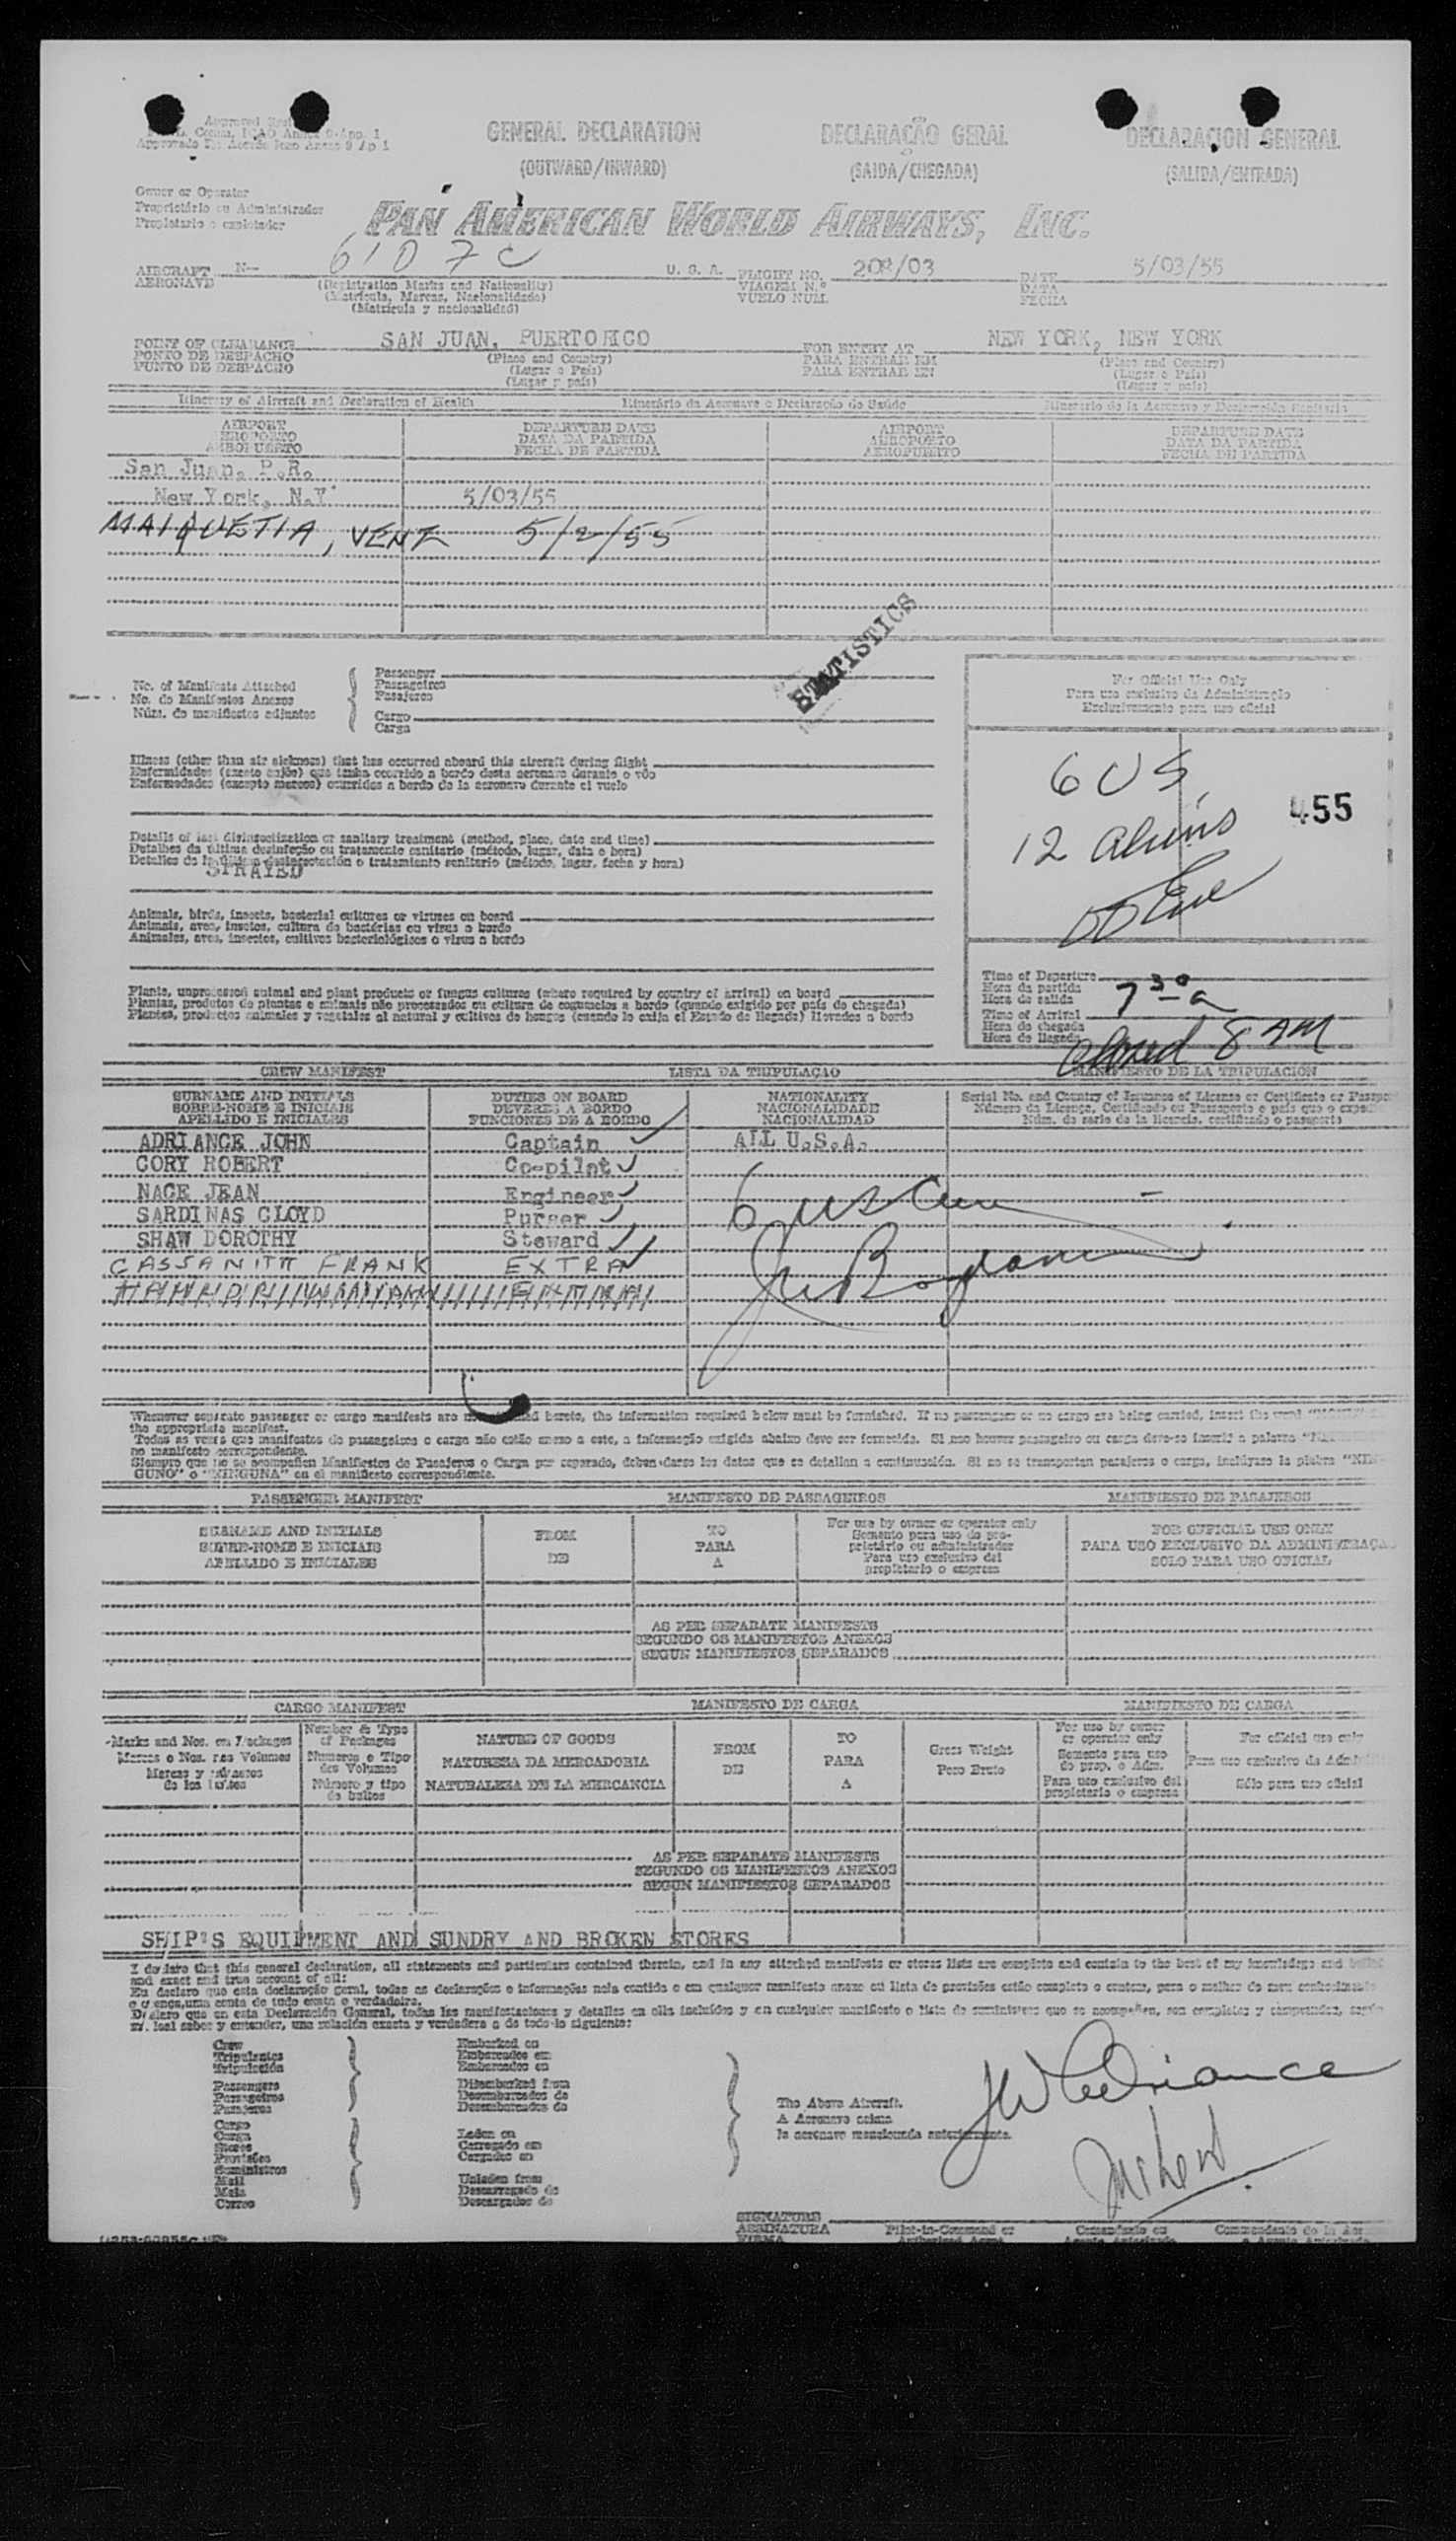 GENERAL DECLARATION
(OUTWARD/INWARD)
DECLARAÇÃO GERAL
(SAIDA/CHEGADA)
DECLARACION GENERAL
(SALIDA/ENTRADA)
Owner or Operator
Proprietário ou Administrador
Propietario o explotador
PAN AMERICAN WORLD AIRWAYS, INC.
AIRCRAFT N- 6107C U. S. A.
AERONAVE
(Registration Marks and Nationality)
(Matrícula, Marcas, Nacionalidade)
(Matrícula y nacionalidad)
FLIGHT NO. 208/03
VIAGEM N.º
VUELO NUM.
DATE 5/03/55
DATA
FECHA
POINT OF CLEARANCE SAN JUAN, PUERTO RICO
PONTO DE DESPACHO
PUNTO DE DESPACHO
(Place and Country)
(Lugar e País)
(Lugar y país)
FOR ENTRY AT NEW YORK, NEW YORK
PARA ENTRAR EM
PARA ENTRAR EN
(Place and Country)
(Lugar e País)
(Lugar y país)
Itinerary of Aircraft and Declaration of Health
Itinerário da Aeronave e Declaração de Saúde
Itinerario de la Aeronave y Declaración Sanitaria
AIRPORT
AEROPORTO
AEROPUERTO
DEPARTURE DATE
DATA DA PARTIDA
FECHA DE PARTIDA
AIRPORT
AEROPORTO
AEROPUERTO
DEPARTURE DATE
DATA DA PARTIDA
FECHA DE PARTIDA
San Juan, P.R.
New York, N.Y. 5/03/55
MAIQUETIA, VENZ 5/2/55
STATISTICS
No. of Manifests Attached
No. de Manifestos Anexos
Núm. de manifiestos adjuntos
Passenger
Passageiros
Pasajeros
Cargo
Carga
For Official Use Only
Para uso exclusivo da Administração
Exclusivamente para uso oficial
6 US
12 Aliens
455
Illness (other than air sickness) that has occurred aboard this aircraft during flight
Enfermidades (exceto enjôo) que tenha ocorrido a bordo desta aeronave durante o vôo
Enfermedades (excepto mareos) ocurridas a bordo de la aeronave durante el vuelo
Details of last disinsectization or sanitary treatment (method, place, date and time)
Detalhes da última desinfeção ou tratamento sanitário (método, lugar, data e hora)
Detalles de la última desinsectación o tratamiento sanitario (método, lugar, fecha y hora)
STRAYED
Animals, birds, insects, bacterial cultures or viruses on board
Animais, aves, insetos, cultura de bactérias ou vírus a bordo
Animales, aves, insectos, cultivos bacteriológicos o virus a bordo
Plants, unprocessed animal and plant products or fungus cultures (where required by country of arrival) on board
Plantas, produtos de plantas e animais não processados ou cultura de cogumelos a bordo (quando exigido por país de chegada)
Plantas, productos animales y vegetales al natural y cultivos de hongos (cuando lo exija el Estado de llegada) llevados a bordo
Time of Departure 7 30 a
Hora da partida
Hora de salida
Time of Arrival
Hora de chegada
Hora de llegada
closed 8 AM
CREW MANIFEST
LISTA DA TRIPULAÇAO
MANIFIESTO DE LA TRIPULACION
SURNAME AND INITIALS
SOBRE-NOME E INICIAIS
APELLIDO E INICIALES
DUTIES ON BOARD
DEVERES A BORDO
FUNCIONES DE A BORDO
NATIONALITY
NACIONALIDADE
NACIONALIDAD
Serial No. and Country of Issuance of License or Certificate or Passport
Núm. de serie de la licencia, certificado o pasaporte
ADRIANCE JOHN Captain ALL U.S.A.
CORY ROBERT Co-pilot
NACE JEAN Engineer
SARDINAS CLOYD Purser
SHAW DOROTHY Steward
CASSANITTI FRANK EXTRA
Whenever separate passenger or cargo manifests are hereto, the information required below must be furnished. If no passengers or no cargo are being carried, insert the word
the appropriate manifest.
no manifesto correspondente.
GUNO" o "NINGUNA" en el manifiesto correspondiente.
PASSENGER MANIFEST
MANIFESTO DE PASSAGEIROS
MANIFIESTO DE PASAJEROS
SURNAME AND INITIALS
SOBRE-NOME E INICIAIS
APELLIDO E INICIALES
FROM
DE
TO
PARA
A
For use by owner or operator only
Somente para uso do pro-
prietário ou administrador
Para uso exclusivo del
propietario o empresa
FOR OFFICIAL USE ONLY
PARA USO EXCLUSIVO DA ADMINISTRAÇÃO
SOLO PARA USO OFICIAL
AS PER SEPARATE MANIFESTS
SEGUNDO OS MANIFESTOS ANEXOS
SEGUN MANIFIESTOS SEPARADOS
CARGO MANIFEST
MANIFESTO DE CARGA
MANIFIESTO DE CARGA
Marks and Nos. on Packages
Marcas e Nos. nos Volumes
Marcas y números
de los bultos
Number & Type
of Packages
Numeros e Tipo
dos Volumes
Número y tipo
de bultos
NATURE OF GOODS
NATUREZA DA MERCADORIA
NATURALEZA DE LA MERCANCIA
FROM
DE
TO
PARA
A
Gross Weight
Peso Bruto
For use by owner
or operator only
Somente para uso
do prop. e Adm.
Para uso exclusivo del
propietario o empresa
For official use only
Para uso exclusivo da
Sólo para uso oficial
AS PER SEPARATE MANIFESTS
SEGUNDO OS MANIFESTOS ANEXOS
SEGUN MANIFIESTOS SEPARADOS
SHIP'S EQUIPMENT AND SUNDRY AND BROKEN STORES
I declare that this general declaration, all statements and particulars contained therein, and in any attached manifests or stores lists are complete and contain to the best of my knowledge and belief
and exact and true account of all:
Crew
Tripulantes
Tripulación
Passengers
Passageiros
Pasajeros
Cargo
Carga
Stores
Provisões
Suministros
Mail
Mala
Correo
Embarked on
Embarcados em
Embarcados en
Disembarked from
Desembarcados de
Desembarcados de
Laden on
Carregado em
Cargados en
Unladen from
Descarregado de
Descargados de
The Above Aircraft.
A Aeronave acima
la aeronave mencionada anteriormente.
JW Adriance
SIGNATURE
ASSINATURA
FIRMA
Pilot-in-Command or
Authorized Agent
Comandante ou
Comandante de la